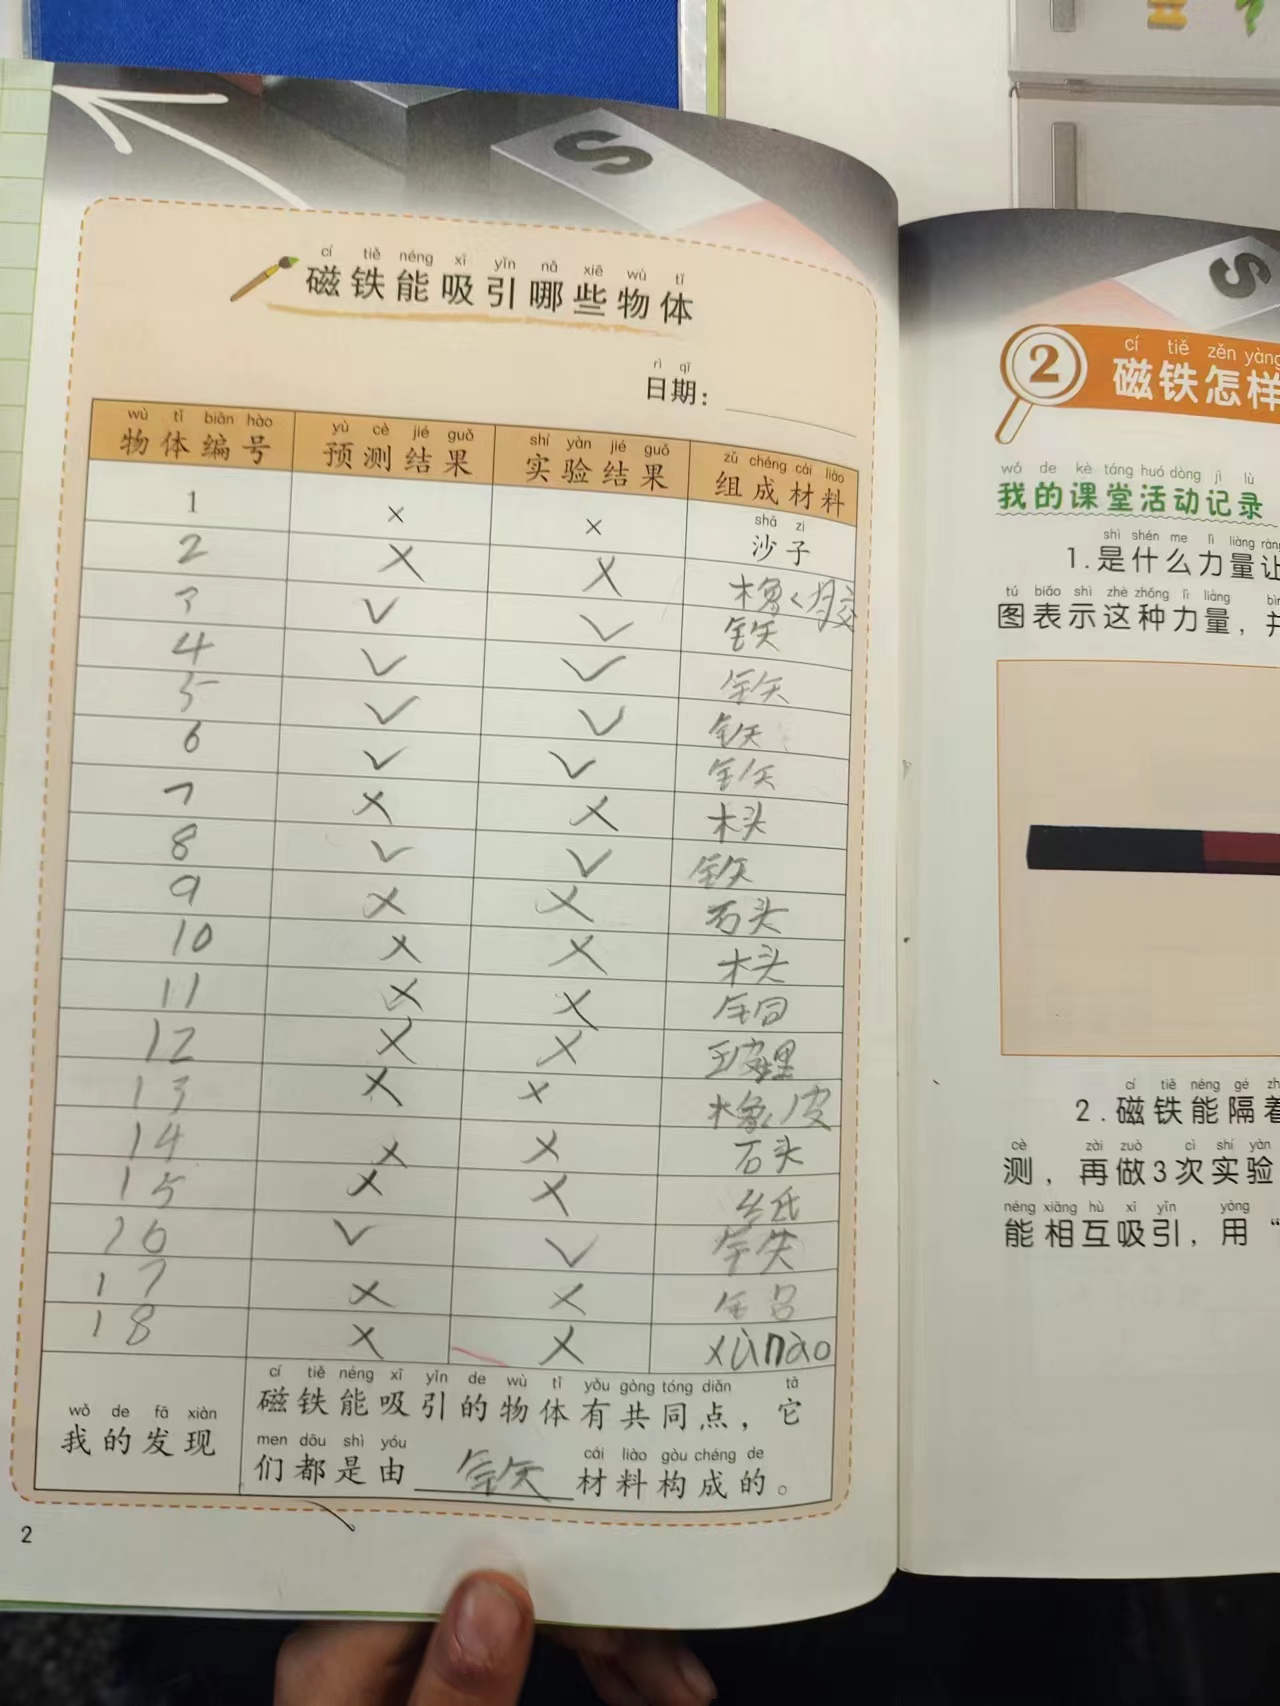 S
cí tiě néng xī yǐn nǎ xiē wù tǐ
磁铁能吸引哪些物体
rì qī
日期：
wù tǐ biān hào yù cè jié guǒ shí yàn jié guǒ zǔ chéng cái liào
物体编号 预测结果 实验结果 组成材料
shā zi
1 × × 沙子
2 × × 橡胶
3 ✓ ✓ 铁
4 ✓ ✓ 铁
5 ✓ ✓ 铁
6 ✓ ✓ 铁
7 × × 木头
8 ✓ ✓ 铁
9 × × 石头
10 × × 木头
11 × × 铜
12 × × 玻璃
13 × × 橡皮
14 × × 石头
15 × × 纸
16 ✓ ✓ 铁
17 × × 铝
18 × × xùnào
cí tiě néng xī yǐn de wù tǐ yǒu gòng tóng diǎn tā
磁铁能吸引的物体有共同点，它
wǒ de fā xiàn
我的发现
men dōu shì yóu cái liào gòu chéng de
们都是由 铁 材料构成的。
2
S
cí tiě zěn yàng
2 磁铁怎样
wǒ de kè táng huó dòng jì lù
我的课堂活动记录
shì shén me lì liàng ràng
1.是什么力量让
tú biǎo shì zhè zhǒng lì liàng
图表示这种力量，并
cí tiě néng gé
2.磁铁能隔着
cè zài zuò cì shí yàn
测，再做3次实验
néng xiāng hù xī yǐn yòng
能相互吸引，用“